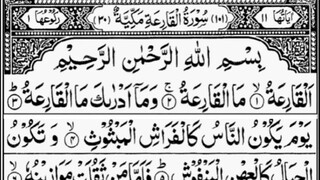 اٰیَاتُهَا ۱۱ (۱۰۱) سُوْرَةُ الْقَارِعَةِ مَكِّيَّةٌ (۳۰) رُكُوْعُهَا ۱
بِسْمِ اللّٰهِ الرَّحْمٰنِ الرَّحِيْمِ
اَلْقَارِعَةُ ۱ مَا الْقَارِعَةُ ۲ وَمَاۤ اَدْرٰىكَ مَا الْقَارِعَةُ ۳
يَوْمَ يَكُوْنُ النَّاسُ كَالْفَرَاشِ الْمَبْثُوْثِ ۴ وَتَكُوْنُ
الْجِبَالُ كَالْعِهْنِ الْمَنْفُوْشِ ۵ فَاَمَّا مَنْ ثَقُلَتْ مَوَازِيْنُهٗ ۶